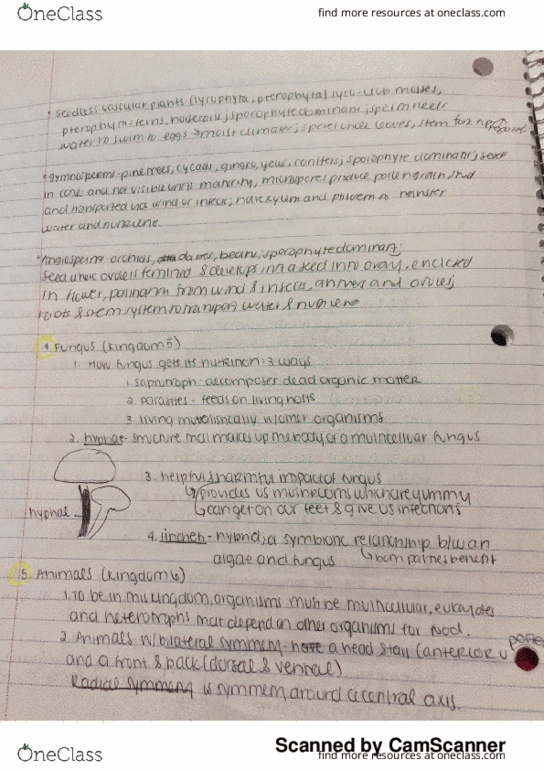 OneClass
find more resources at oneclass.com
• seedless vascular plants (lycophyta, pterophyta) lyco-club mosses,
pterophyta-ferns, horsetails; sporophyte dominant; sperm needs
water to swim to eggs → moist climates; leaves, stem
• gymnosperms-pine trees, cycads, gingko, yews, conifers; sporophyte dominant; seed
in cone and not visible until maturity, microspores produce pollen grain,
and transported via wind or insects; have xylem and phloem to transfer
water and nutrients.
• Angiosperms-orchids, daisies, beans, sporophyte dominant;
seed ovule is fertilized & develops into a seed in ovary, enclosed
in flower, from wind & insects, anthers and ovules,
roots & stem system to transport water & nutrients
4 Fungus (Kingdom 5)
1. How fungus gets its nutrition: 3 ways
1. saprotroph-decomposer dead organic matter
2. parasites - feeds on living hosts
3. living mutalistically w/other organisms
2. hyphae- structure that makes up the body of a multicellular fungus
3. helpful & harmful impact of fungus
↳ provides us mushrooms which are yummy
↳ can get on our feet & give us infections
hyphae
4. linchen- hybrid, a symbiotic relationship b/w an
algae and fungus ↳ both parties benefit
15. Animals (Kingdom 6)
1. To be in this kingdom, organisms must be multicellular, eukaryotes
and heterotrophs that depend on other organisms for food.
2. Animals w/bilateral symmetry- have a head & tail (anterior
and a front & back (dorsal & ventral)
Radial symmetry is symmetry around a central axis.
Scanned by CamScanner
OneClass
find more resources at oneclass.com